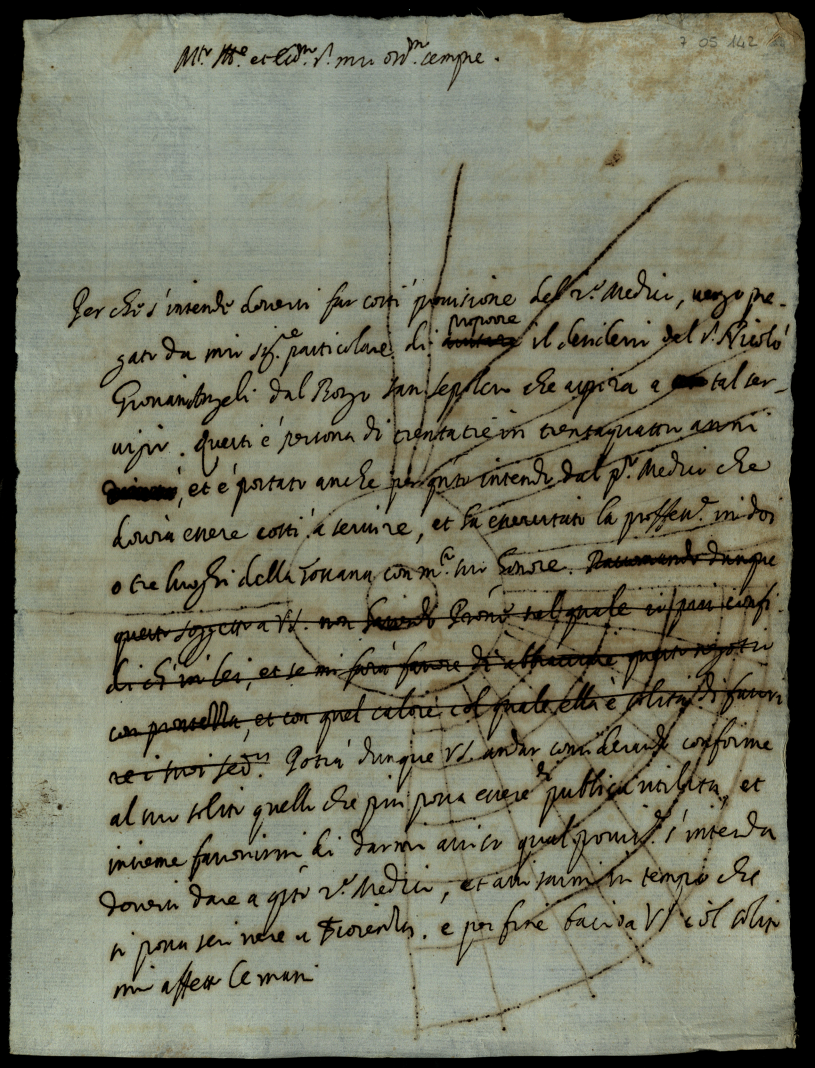 7 05 142
M.to Ill.e et Ecc.mo S.r mio oss.mo sempre.
Perche s'intende doversi far costi provisione del 2.o Medico, vengo pre-
gato da mio sig.re particolare di proporre il desiderio del S.r Nicolò
Giovanangeli dal Borgo san sepolcro che aspira a tal ser-
visio. Questi è persona di trentatre in trentaquattro anni
, et è portato anche per q.to intendo dal p.o Medico che
dovrà essere costì a servire, et ha esercitato la profess.e in doi
o tre luoghi della Toscana con m.o suo honore. Raccomando dunque
questo soggetto a VS. non havendo Prone sul quale io possi confi
di ch'in lei, et se mi farà favore di abbracciare questo negotio
con prontezza, et con quel calore col quale ella è solita di favori
re i suoi ser.ri Potrà dunque VS. andar considerando conforme
al suo solito quello che più possa essere di publica utilità, et
insieme favorirmi di darmi aviso qual provis.e s'intenda
doversi dare a q.to 2.o Medico, et avisarmi in tempo che
si possa scrivere a Fiorenza. e per fine bacio a VS col solito
mio affetto le mani